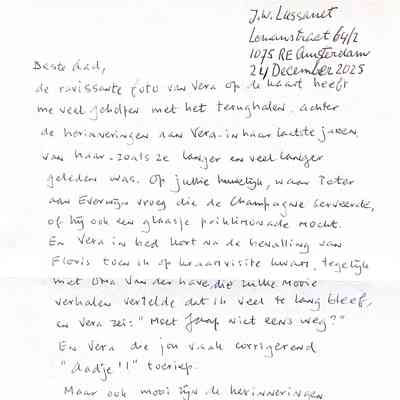 J.W. Lussanet
Lomanstraat 64/2
1075 RE Amsterdam
24 December 2025
Beste Aad,
de ravissante foto van Vera op de kaart heeft
me veel geholpen met het terughalen, achter
de herinneringen aan Vera-in haar laatste jaren,
van haar-zoals ze langer en veel langer
geleden was. Op jullie huwelijk, waar Peter
aan Everwijn vroeg die de champagne serveerde,
of hij ook een glaasje priklimonade mocht.
En Vera in bed kort na de bevalling van
Floris toen ik op kraamvisite kwam, tegelijk
met Oma van der have, die zulke mooie
verhalen vertelde dat ik veel te lang bleef,
en Vera zei: "Moet Jaap niet eens weg?"
En Vera die jou vaak corrigerend
"Aadje!!" toeriep.
Maar ook mooi zijn de herinneringen